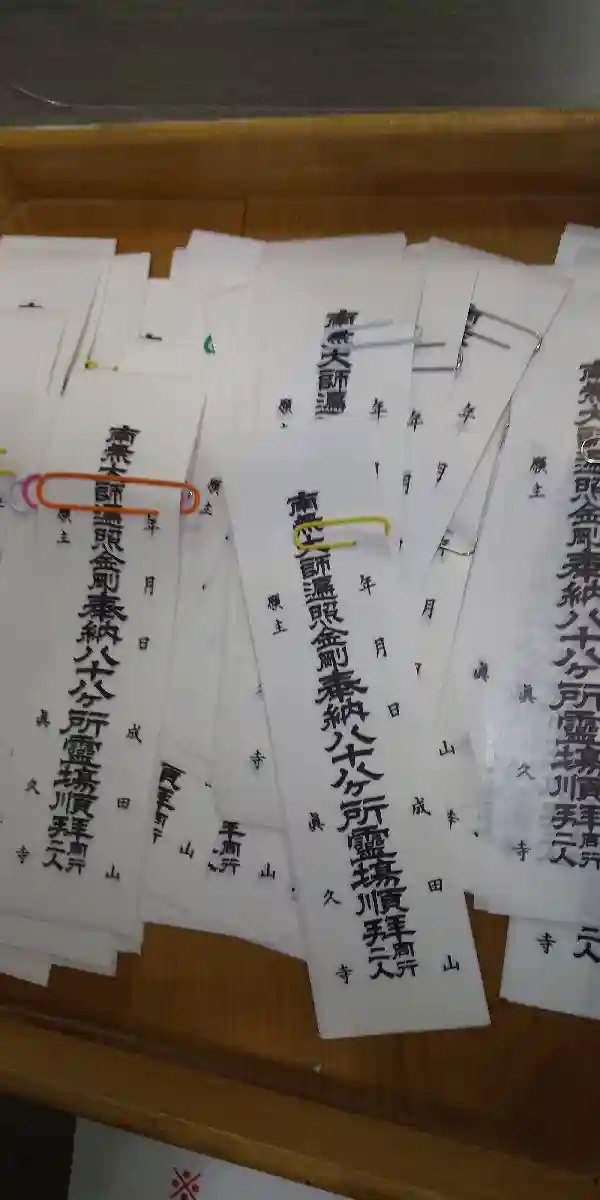 南無大師遍照金剛奉納八十八ケ所靈場順拜同行二人
年月日
成田山
願主
眞久寺
南無大師遍照金剛奉納八十八ケ所靈場順拜同行二人
年月日
成田山
願主
眞久寺
南無大師遍
年
願
南無大師遍照金剛奉納八十八ケ所靈場順拜同行二人
願主
眞久寺
年月
年月
山
寺
山
山
寺
二人
※